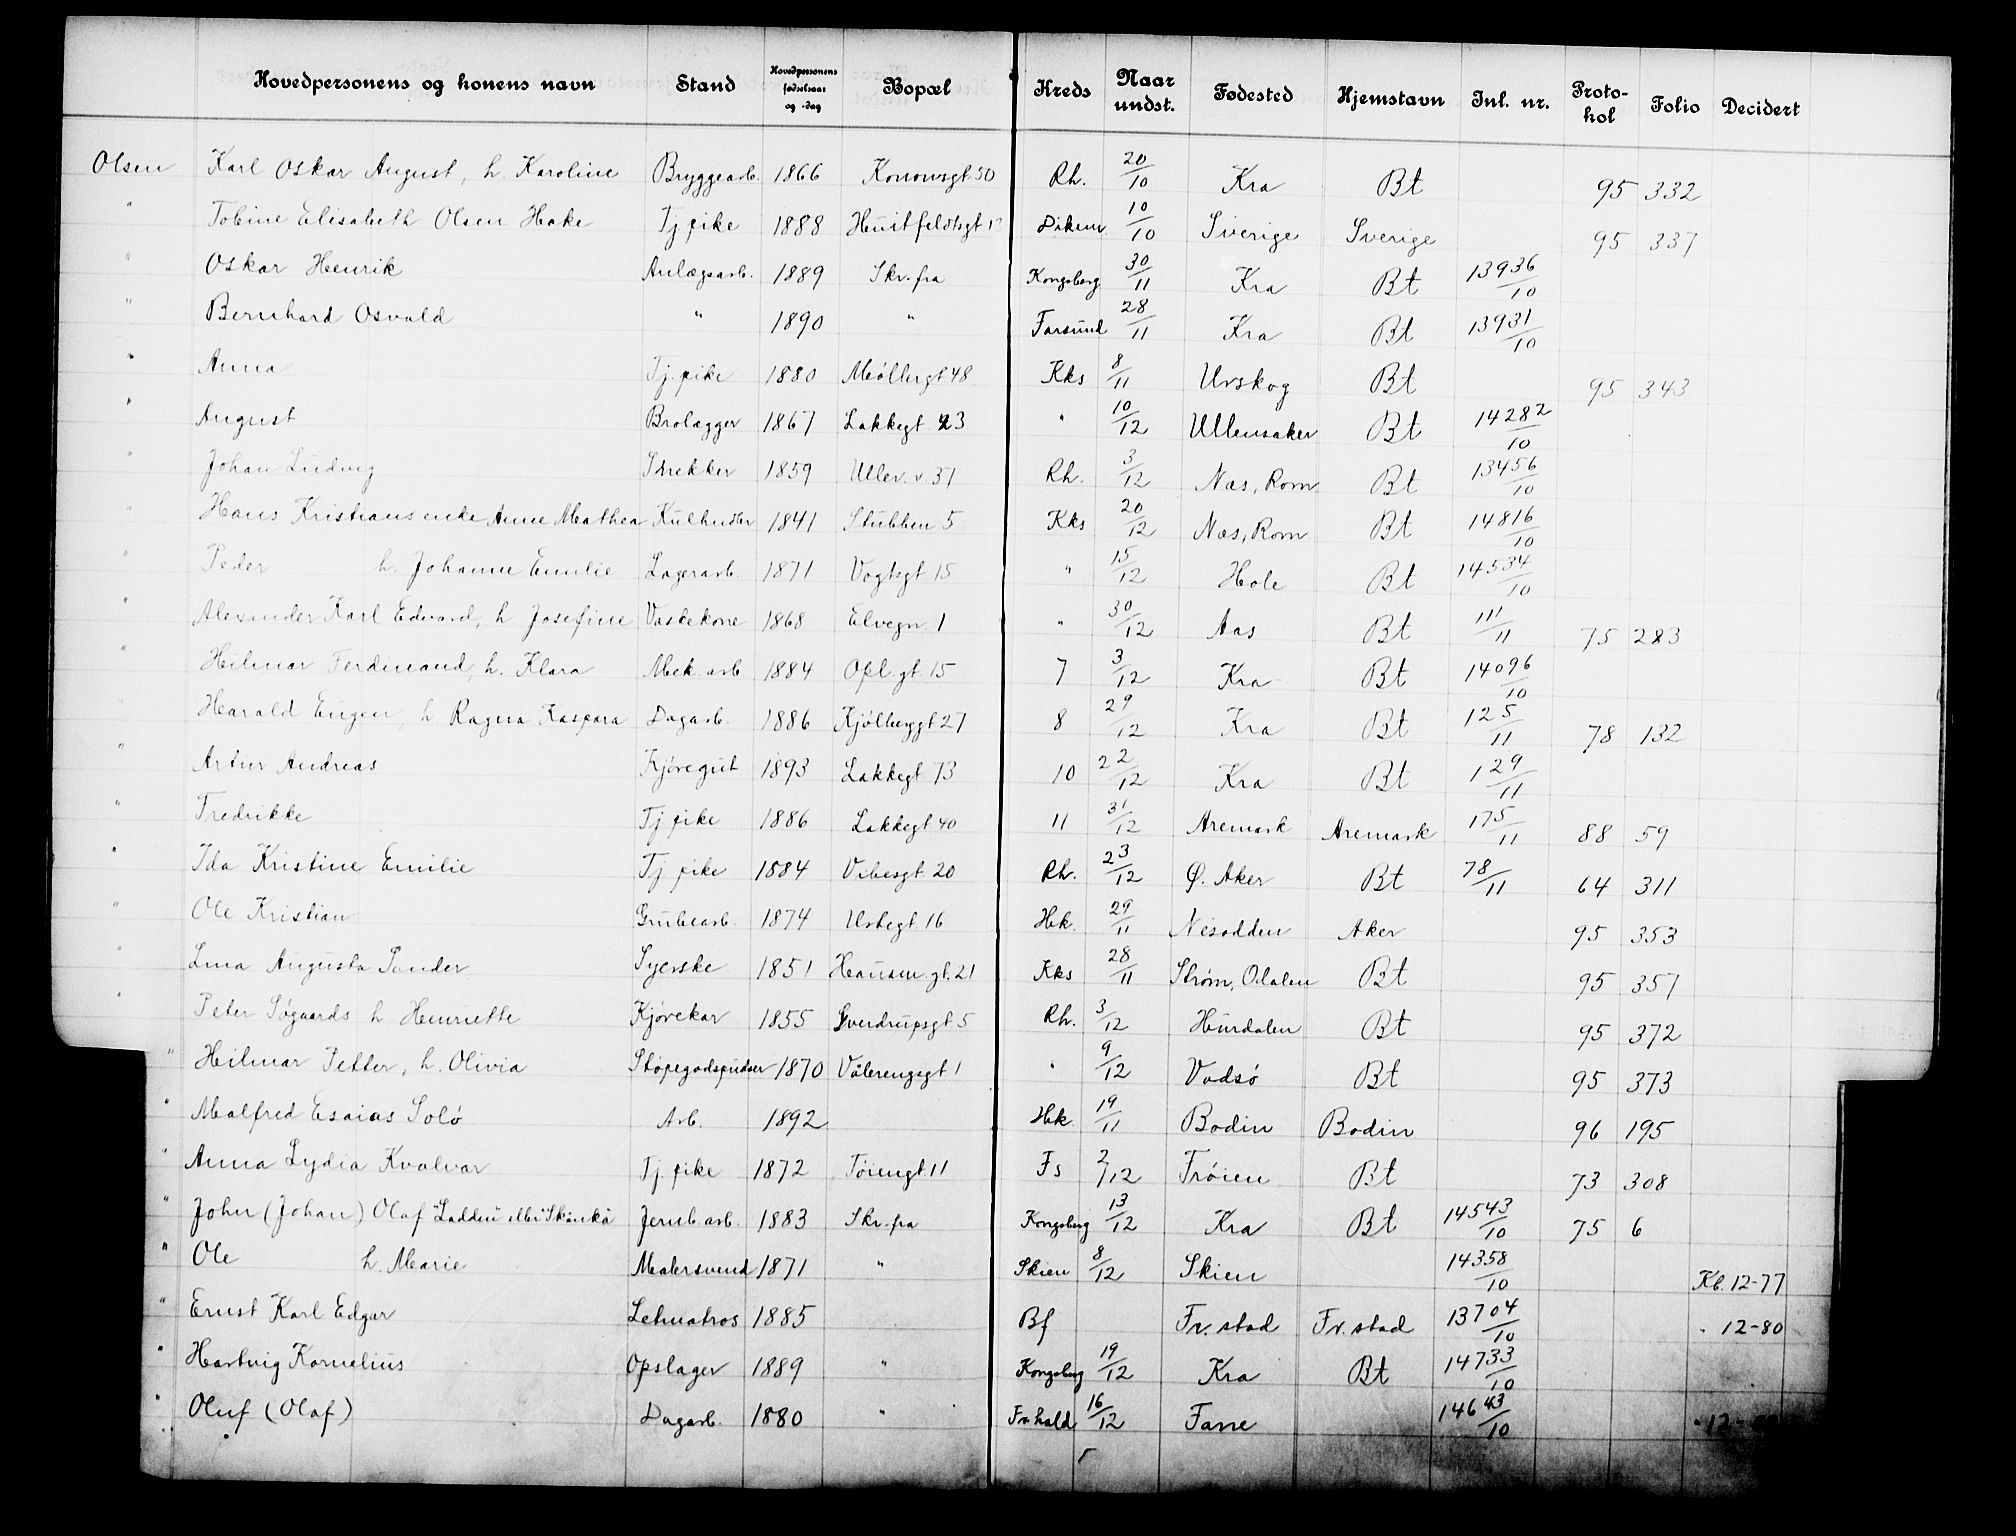 Hovedpersonens og konens navn Stand Hovedpersonens fødselsaar og -dag Bopæl Kreds Naar undst. Fødested Hjemstavn Inl. nr. Proto-kol Folio Decidert
Olsen Karl Oskar August, h. Karoline Bryggearb. 1866 Konowsgt. 50 Rh. 20/10 Kra Bt 95 332
" Tobine Elisabeth Olsen Hake Tj. pike 1888 Huitfeldtsgt Dikem. 10/10 Sverige Sverige 95 337
" Oskar Henrik Anlægsarb. 1889 Skr. fra Kongsberg 30/11 Kra Bt 13936/10
" Bernhard Osvald " 1890 " Farsund 28/11 Kra Bt 13931/10
" Anna Tj. pike 1880 Møllergt 48 Kks 8/11 Urskog Bt 95 343
" August Brolægger 1867 Lakkegt. 23 " 10/12 Ullensaker Bt 14282/10
" Johan Ludvig Strekker 1859 Ullev. v. 37 Rh. 3/12 Næs, Rom. Bt 13456/10
" Hans Kristians enke Anne Mathea Kulhusbr 1841 Stubben 5 Kks 20/12 Næs, Rom Bt 14816/10
" Peder h. Johanne Emilie Lagerarb. 1871 Vogtsgt 15 " 15/12 Hole Bt 14534/10
" Alexander Karl Edvard, h Josefine Vaskekone 1868 Elvegn. 1 " 30/12 Aas Bt 111/11 75 283
" Hilmar Ferdinand, h. Klara Mek. arb 1884 Opl. gt. 15 7 3/12 Kra Bt 14096/10
" Harald Eugen, h Ragna Kaspara Dagarb. 1886 Kjølberggt 27 8 29/12 Kra Bt 125/11 78 132
" Artur Andreas Kjøregut 1893 Lakkegt 73 10 22/12 Kra Bt 129/11
" Fredrikke Tj pike 1886 Lakkegt 40 11 31/12 Aremark Aremark 175/11 88 59
" Ida Kristine Emilie Tj. pike 1884 Vibesgt. 20 Rh. 23/12 Ø. Aker Bt 78/11 64 311
" Ole Kristian Grubearb. 1874 Urtegt 16 Hk. 29/11 Nesodden Aker 95 353
" Lina Augusta Pander Syerske 1851 Hausm. gt. 21 Kks 28/11 Strøm, Odalen Bt 95 357
" Peter Søgaards h Henriette Kjørekar 1855 Sverdrupsgt 5 Rh. 3/12 Hurdalen Bt 95 372
" Hilmar Petter, h. Olivia Støpegodspudser 1870 Vålerengsgt 1 " 9/12 Vadsø Bt 95 373
" Malfred Esaias Solø Arb. 1892 Hk 19/11 Bodin Bodin 96 195
" Anna Lydia Kvalvar Tj. pike 1872 Tøiengt 11 Fs 2/12 Frøien Bt 73 308
" John (Johan) Olaf "Ladden" eller "Skånkå Jernb. arb. 1883 Skr. fra Kongsberg 13/12 Kra Bt 14543/10 75 6
" Ole h. Marie Malersvend 1871 " Skien 8/12 Skien 14358/10 Kb. 12-77
" Ernst Karl Edgar Letmatros 1885 Bf Fr. stad Fr. stad 13704/10 " 12-80
" Hartvig Kornelius Opslager 1889 " Kongsberg 19/12 Kra Bt 14733/10
" Oluf (Olaf) Dagarb. 1880 " Fr. hald 16/12 Farre 14643/10 " 12-